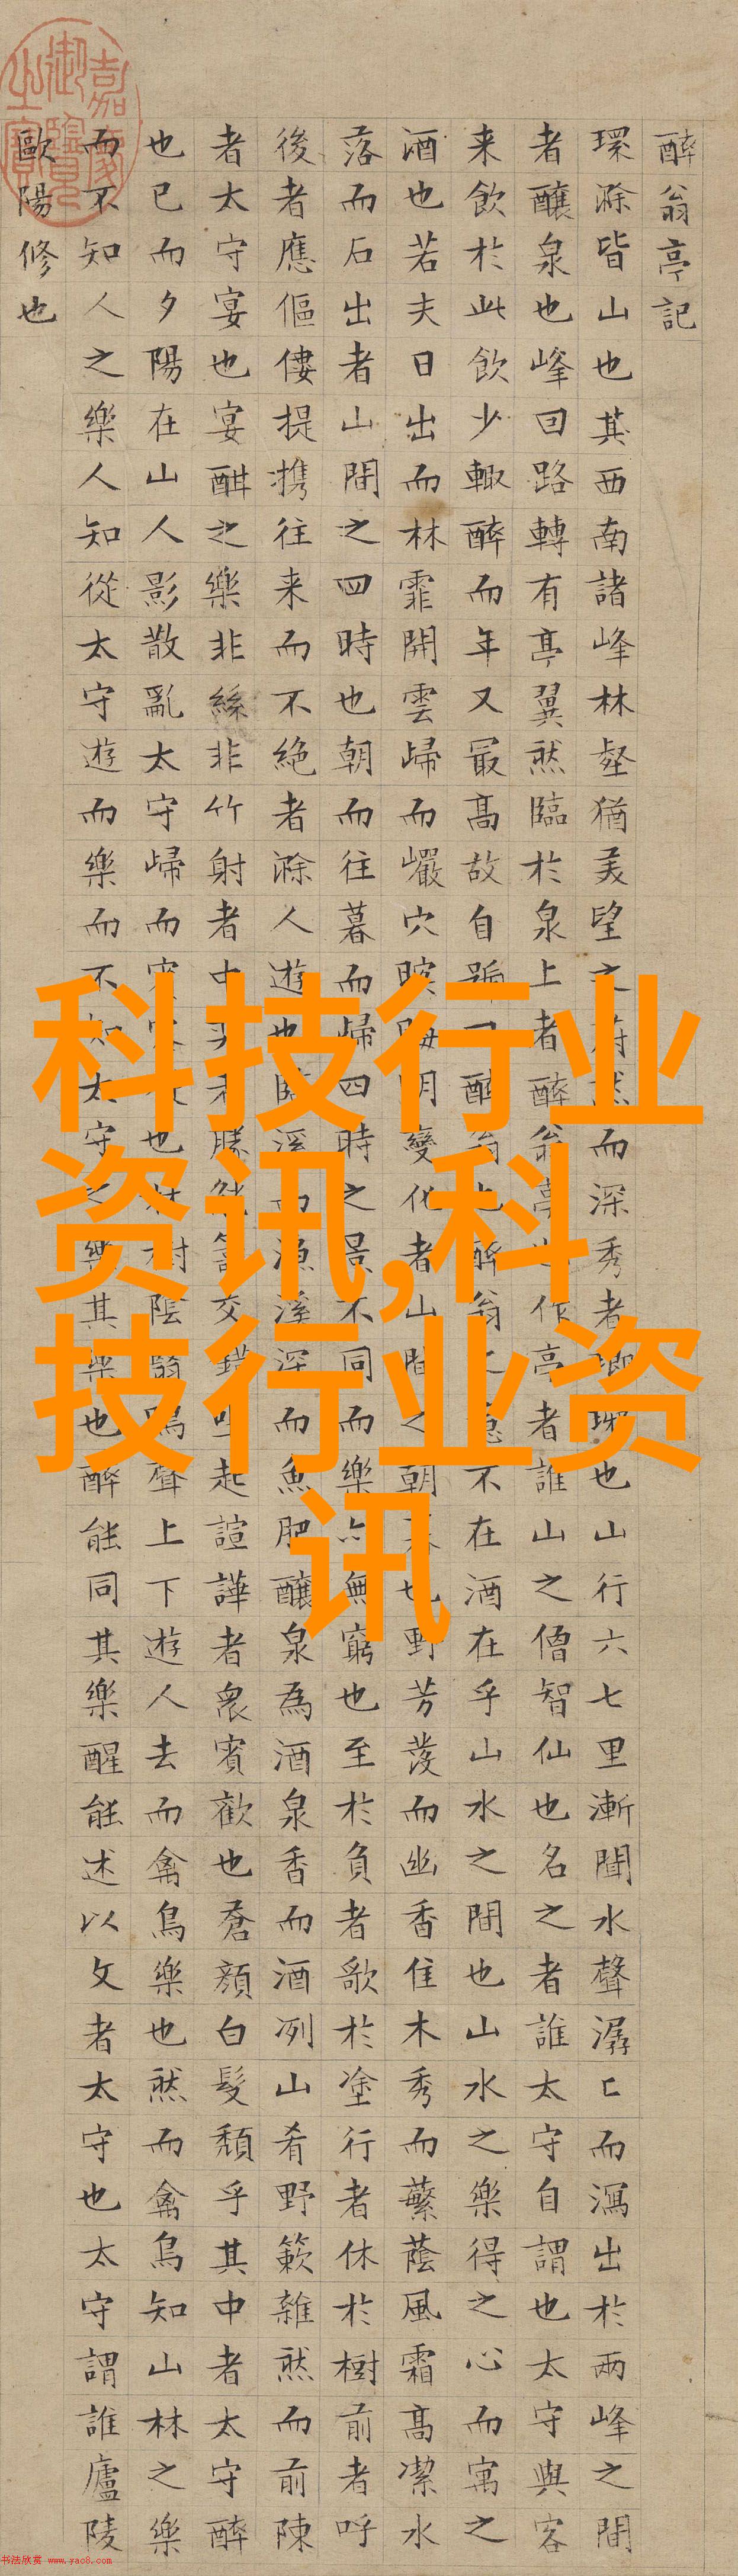 醉翁亭記
環滁皆山也其西南諸峰林壑猶美望之蔚然而深秀者瑯琊也山行六七里漸聞水聲潺〻而瀉出於兩峰之間
者釀泉也峰回路轉有亭翼然臨於泉上者醉翁亭也作亭者誰山之僧智仙也名之者誰太守自謂也太守與客
来飲於此飲少輙醉而年又最髙故自號曰醉翁也醉翁之意不在酒在乎山水之間也山水之樂得之心而寓之
酒也若夫日出而林霏開雲歸而巖穴暝晦明變化者山間之朝暮也野芳發而幽香佳木秀而蘩蔭風霜髙潔水
落而石出者山間之四時也朝而往暮而歸四時之景不同而樂亦無窮也至於負者歌於塗行者休於樹前者呼
後者應傴僂提攜往来而不絶者滁人遊也臨溪而漁溪深而魚肥釀泉為酒泉香而酒冽山肴野簌雜然而前陳
者太守宴也宴酣之樂非絲非竹射者中奕者勝觥籌交錯起諠譁者衆賓歡也蒼顏白髮頹乎其中者太守醉
也已而夕陽在山人影散亂太守歸而賓客從也林樹陰翳鳴聲上下遊人去而禽鳥樂也然而禽鳥知山林之樂
而不知人之樂人知從太守遊而樂而不知太守之樂其樂也醉能同其樂醒能述以文者太守也太守謂誰廬陵
歐陽修也
嘉慶御覽之寶
科技行业
资讯,科
技行业资
讯
书法欣赏 www.yac8.com